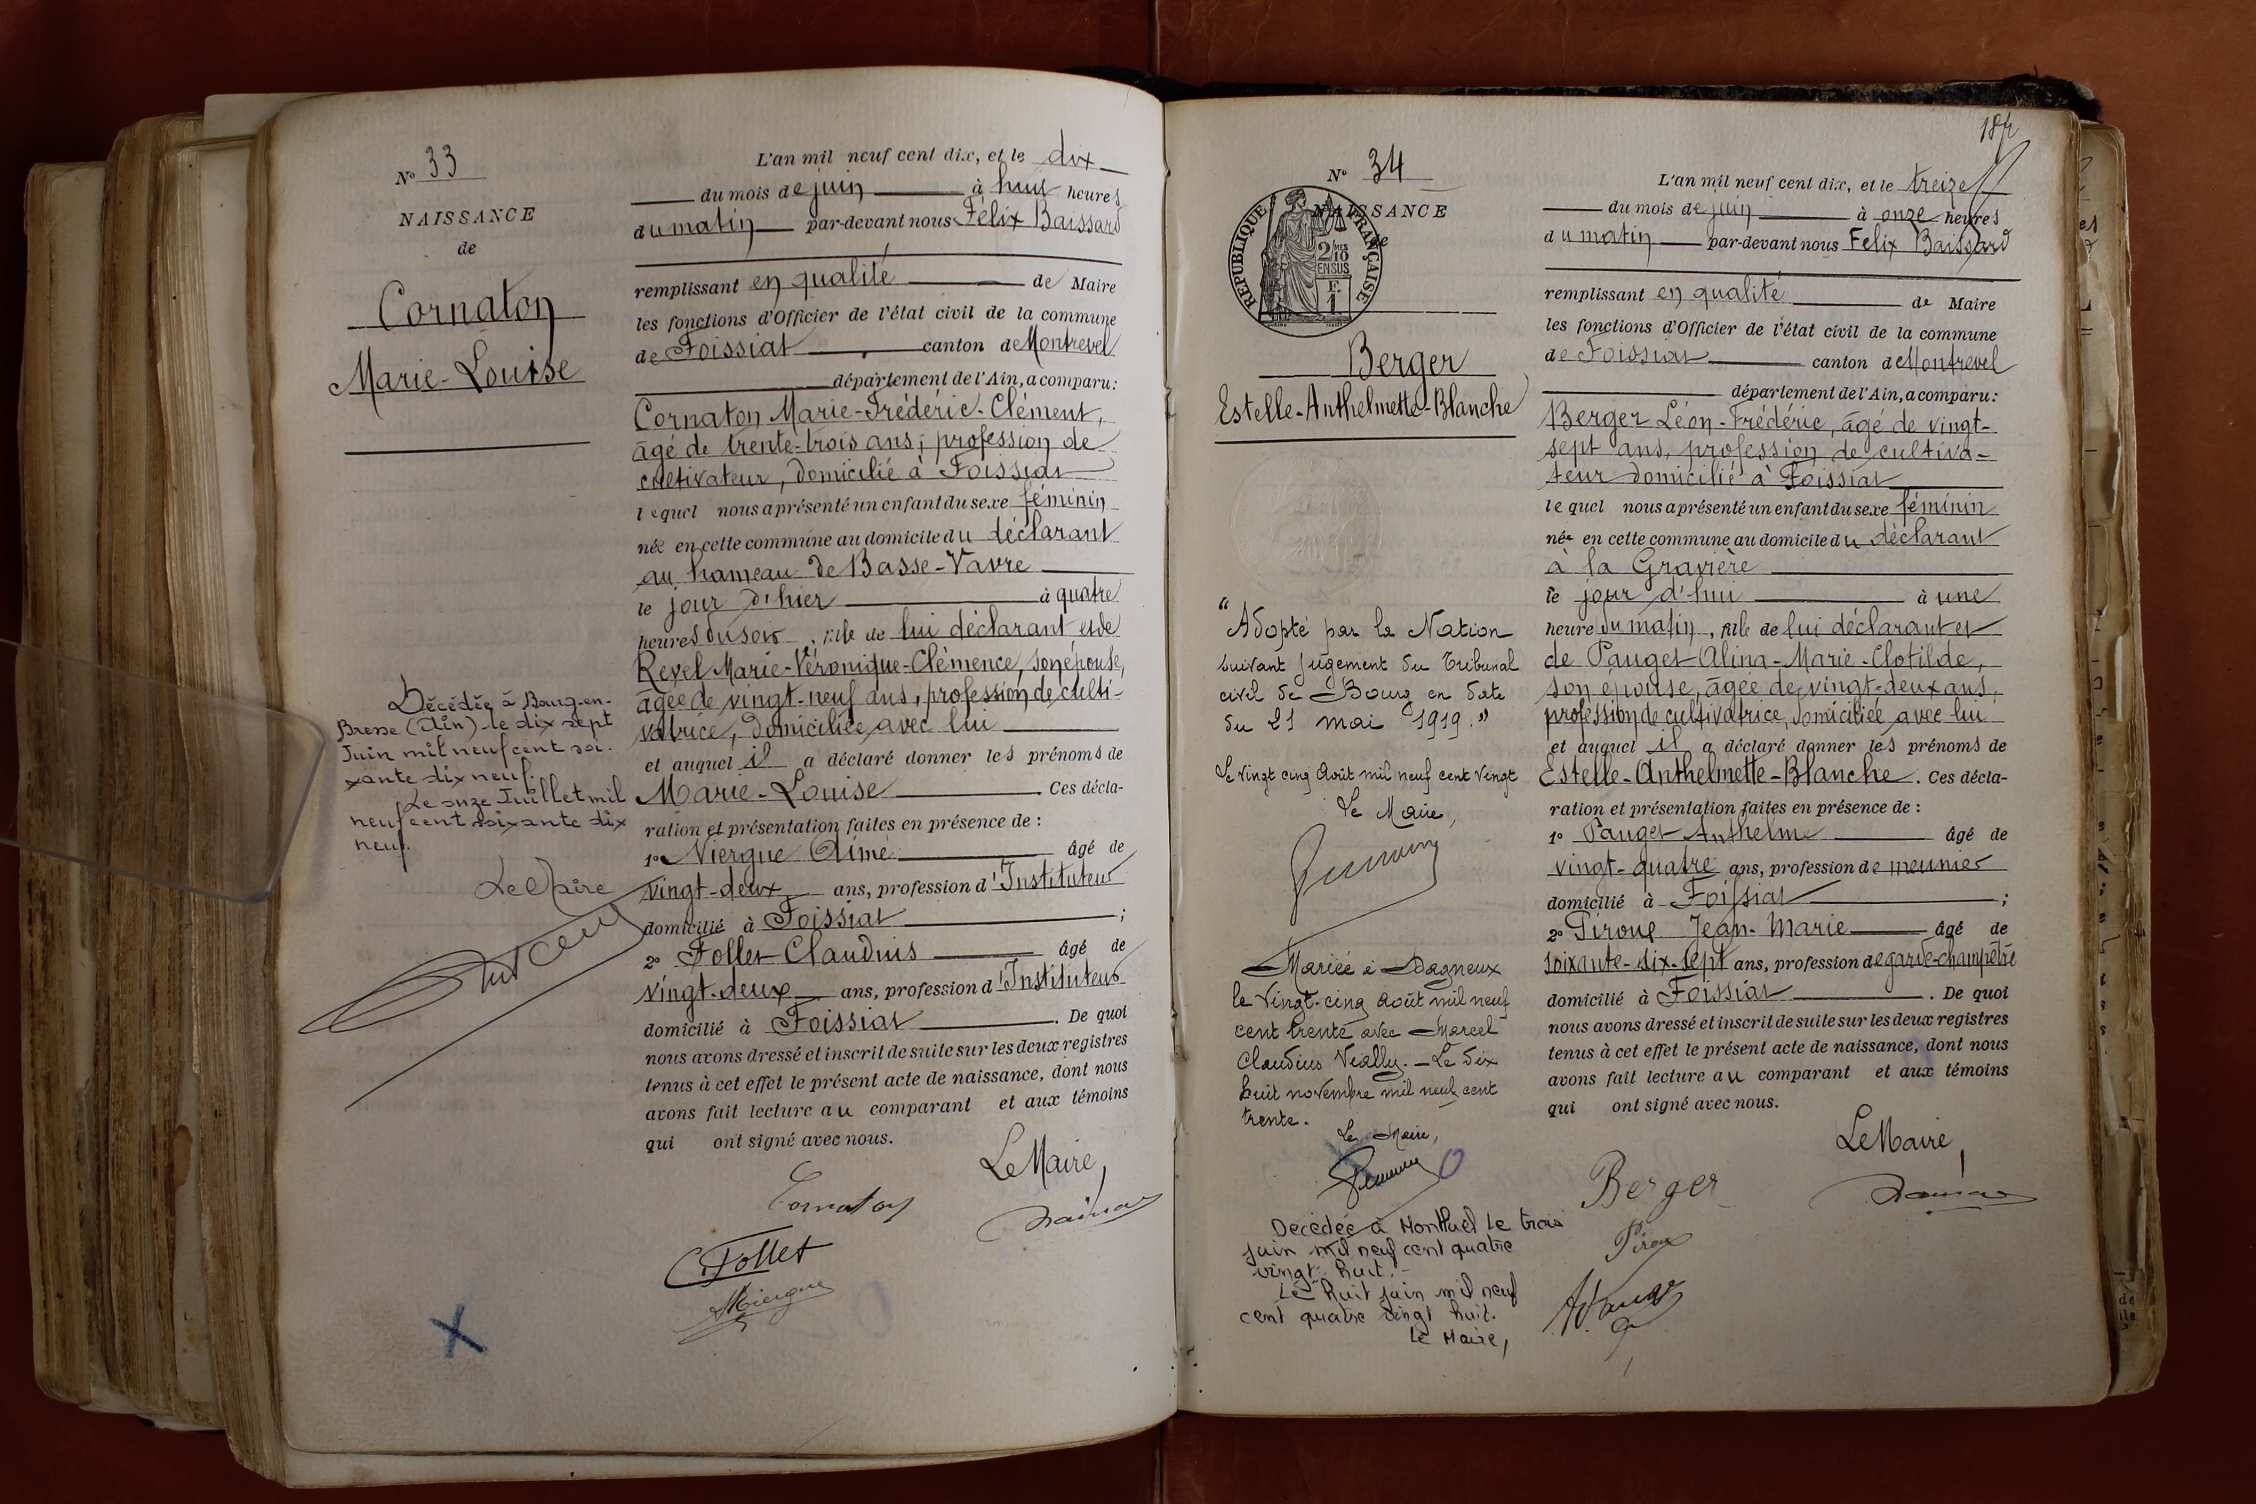 N° 33
NAISSANCE
de
Cornaton
Marie-Louise
Décédée à Bourg-en-
Bresse (Ain) le dix sept
Juin mil neuf cent soi-
xante dix neuf.
Le onze Juillet mil
neuf cent soixante dix
neuf.
Le Maire
L'an mil neuf cent dix, et le dix
du mois de juin à huit heures
du matin par-devant nous Félix Baissard
remplissant en qualité de Maire
les fonctions d'Officier de l'état civil de la commune
de Foissiat canton de Montrevel
département de l'Ain, a comparu:
Cornaton Marie-Frédéric-Clément,
âgé de trente-trois ans, profession de
cultivateur, domicilié à Foissiat
lequel nous a présenté un enfant du sexe féminin
née en cette commune au domicile du déclarant
au hameau de Basse-Vavre
le jour d'hier à quatre
heures du soir, fille de lui déclarant et de
Revel Marie-Véronique-Clémence, son épouse,
âgée de vingt-neuf ans, profession de culti-
vatrice, domiciliée avec lui
et auquel il a déclaré donner les prénoms de
Marie-Louise. Ces décla-
ration et présentation faites en présence de :
1° Viergue Aimé âgé de
vingt-deux ans, profession d'Instituteur
domicilié à Foissiat ;
2° Follet Claudius âgé de
vingt-deux ans, profession d'Instituteur
domicilié à Foissiat. De quoi
nous avons dressé et inscrit de suite sur les deux registres
tenus à cet effet le présent acte de naissance, dont nous
avons fait lecture au comparant et aux témoins
qui ont signé avec nous.
Le Maire,
Cornaton
C. Follet
AViergue
184
N° 34
NAISSANCE
de
REPUBLIQUE FRANÇAISE
2/10 EN SUS
F. 1
Berger
Estelle-Anthelmette-Blanche
"Adopté par la Nation
suivant jugement du Tribunal
civil de Bourg en date
du 21 mai 1919."
Le vingt cinq Août mil neuf cent vingt
Le Maire,
Mariée à Dagneux
le Vingt-cinq Août mil neuf
cent trente avec Marcel
Claudius Vially. - Le dix
huit novembre mil neuf cent
trente.
Le Maire,
Décédée à Montluel le trois
juin mil neuf cent quatre
vingt huit.-
Le huit juin mil neuf
cent quatre vingt huit.
Le Maire,
L'an mil neuf cent dix, et le treize
du mois de juin à onze heures
du matin par-devant nous Felix Baissard
remplissant en qualité de Maire
les fonctions d'Officier de l'état civil de la commune
de Foissiat canton de Montrevel
département de l'Ain, a comparu:
Berger Léon-Frédéric, âgé de vingt-
sept ans, profession de cultiva-
teur domicilié à Foissiat
lequel nous a présenté un enfant du sexe féminin
née en cette commune au domicile du déclarant
à la Gravière
le jour d'hui à une
heure du matin, fille de lui déclarant et
de Pauget Alina-Marie-Clotilde,
son épouse, âgée de vingt-deux ans,
profession de cultivatrice, domiciliée avec lui
et auquel il a déclaré donner les prénoms de
Estelle-Anthelmette-Blanche. Ces décla-
ration et présentation faites en présence de :
1° Pauget Anthelme âgé de
vingt-quatre ans, profession de meunier
domicilié à Foissiat ;
2° Piroux Jean-Marie âgé de
soixante-dix-sept ans, profession de garde-champêtre
domicilié à Foissiat. De quoi
nous avons dressé et inscrit de suite sur les deux registres
tenus à cet effet le présent acte de naissance, dont nous
avons fait lecture au comparant et aux témoins
qui ont signé avec nous.
Le Maire,
Berger
Piroux